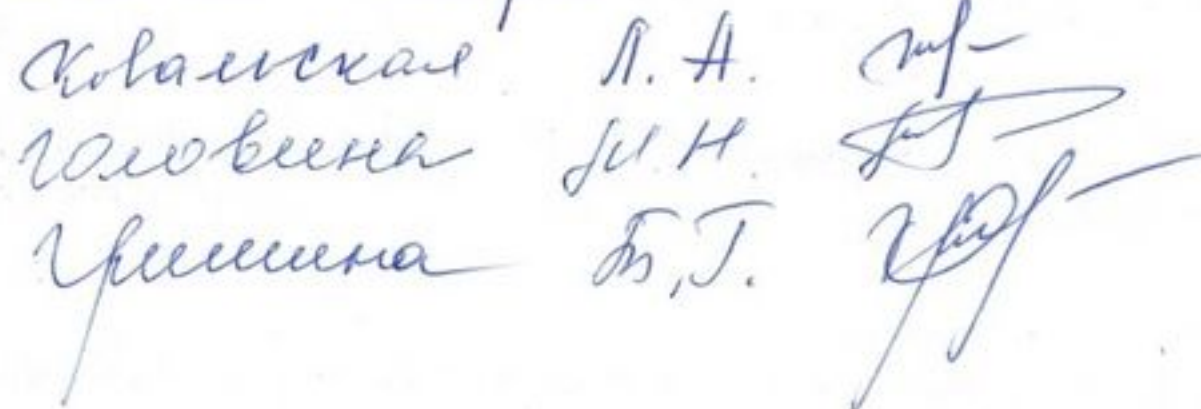 Ковальская Л. А.
Головина М. Н.
Гришина Б. Г.